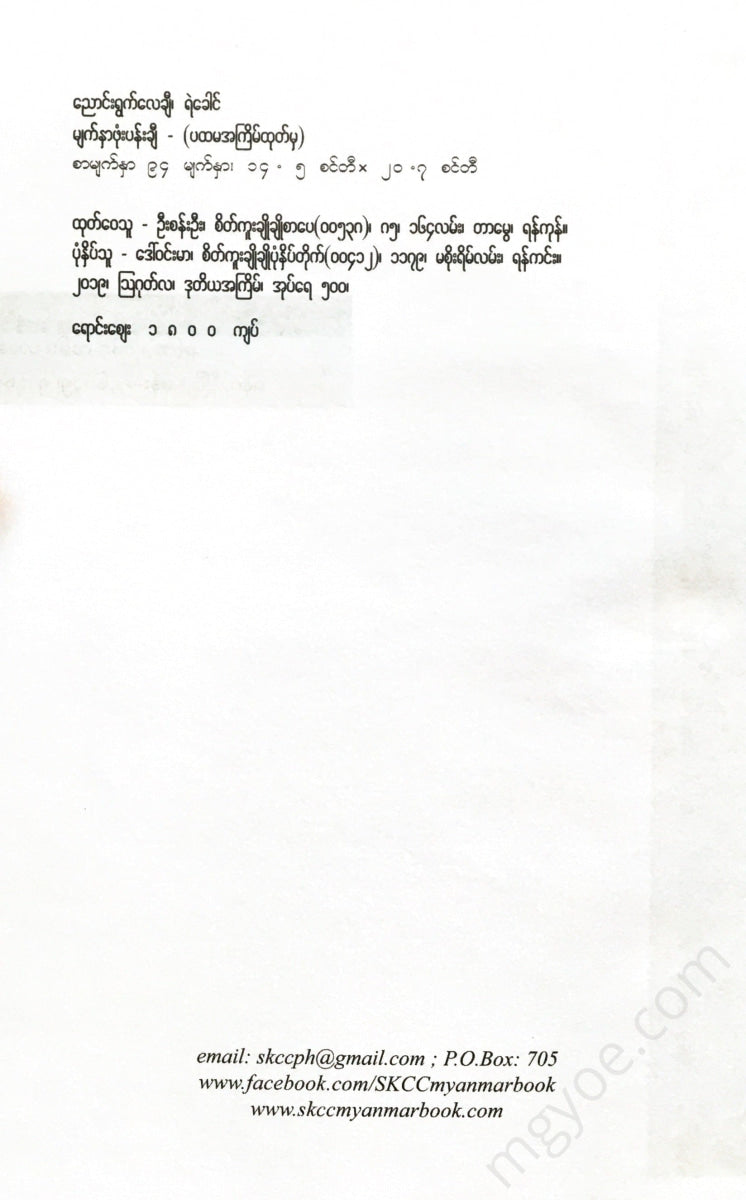 ညောင်းရွက်လေချီ၊ ရဲခေါင်
မျက်နှာဖုံးပန်းချီ - (ပထမအကြိမ်ထုတ်မှ)
စာမျက်နှာ ၉၄ မျက်နှာ၊ ၁၄ . ၅ စင်တီ× ၂၀ .၇ စင်တီ
ထုတ်ဝေသူ - ဦးစန်းဦး၊ စိတ်ကူးချိုချိုစာပေ(၀၀၅၃၈)၊ ဂ၅၊ ၁၆၄လမ်း၊ တာမွေ၊ ရန်ကုန်။
ပုံနှိပ်သူ - ဒေါ်ဝင်းမာ၊ စိတ်ကူးချိုချိုပုံနှိပ်တိုက်(၀၀၄၁၂)၊ ၁၁၇၉၊ မစိုးရိမ်လမ်း၊ ရန်ကင်း။
၂၀၁၉၊ ဩဂုတ်လ၊ ဒုတိယအကြိမ်၊ အုပ်ရေ ၅၀၀၊
ရောင်းဈေး ၁ ၈ ၀ ၀ ကျပ်
email: skccph@gmail.com ; P.O.Box: 705
www.facebook.com/SKCCmyanmarbook
www.skccmyanmarbook.com
mgyoe.com